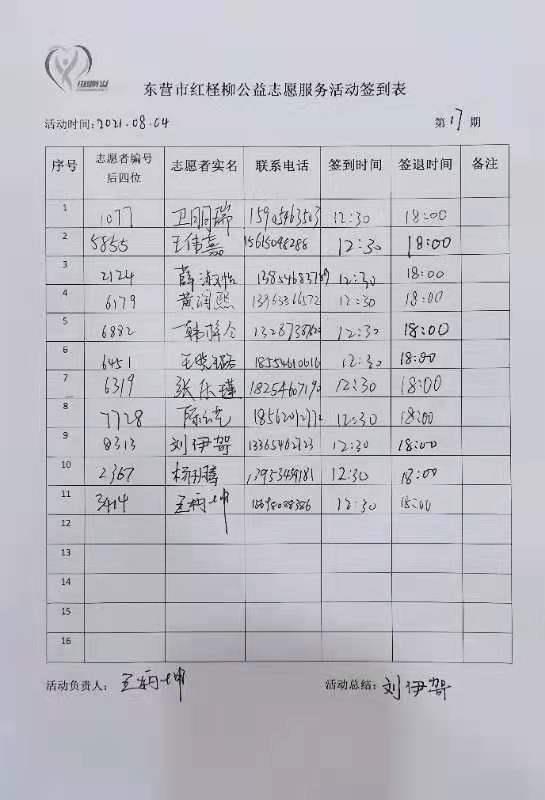 东营市红柽柳公益志愿服务活动签到表
活动时间:2021.08.04 第17期
序号 志愿者编号后四位 志愿者实名 联系电话 签到时间 签退时间 备注
1 1077 12:30 18:00
2 5855 王伟嘉 15615098288 12:30 18:00
3 2124 薛淑怡 12:30 18:00
4 6179 黄润熙 12:30 18:00
5 6882 12:30 18:00
6 6451 18554610616 12:30 18:00
7 6319 张乐瑾 12:30 18:00
8 7728 12:30 18:00
9 8313 刘伊贺 13365462723 12:30 18:00
10 2367 12:30 18:00
11 3414 王炳坤 12:30 18:00
12
13
14
15
16
活动负责人: 王炳坤 活动总结: 刘伊贺